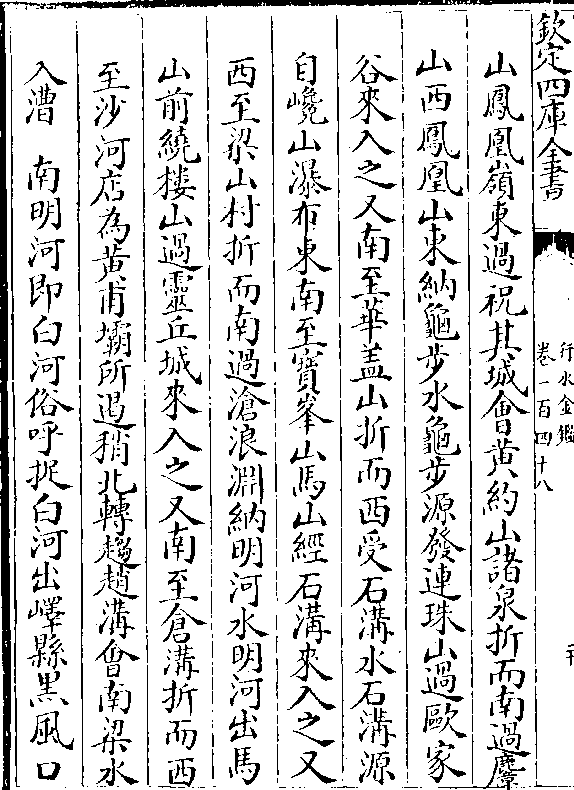 欽定四庫全書
行水金鑑
卷一百四十八
山鳳凰嶺東過祝其城會黄約山諸泉折而南過麾
山西鳳凰山東納龜步水龜步源發連珠山過歐家
谷來入之又南至華盖山折而西受石溝水石溝源
自巉山瀑布東南至寶峯山馬山經石溝來入之又
西至梁山村折而南過滄浪淵納明河水明河出馬
山前繞樓山過靈丘城來入之又南至倉溝折而西
至沙河店為黄甫壩所遏稍北轉趨趙溝會南梁水
入漕　南明河即白河俗呼捉白河出嶧縣黒風口